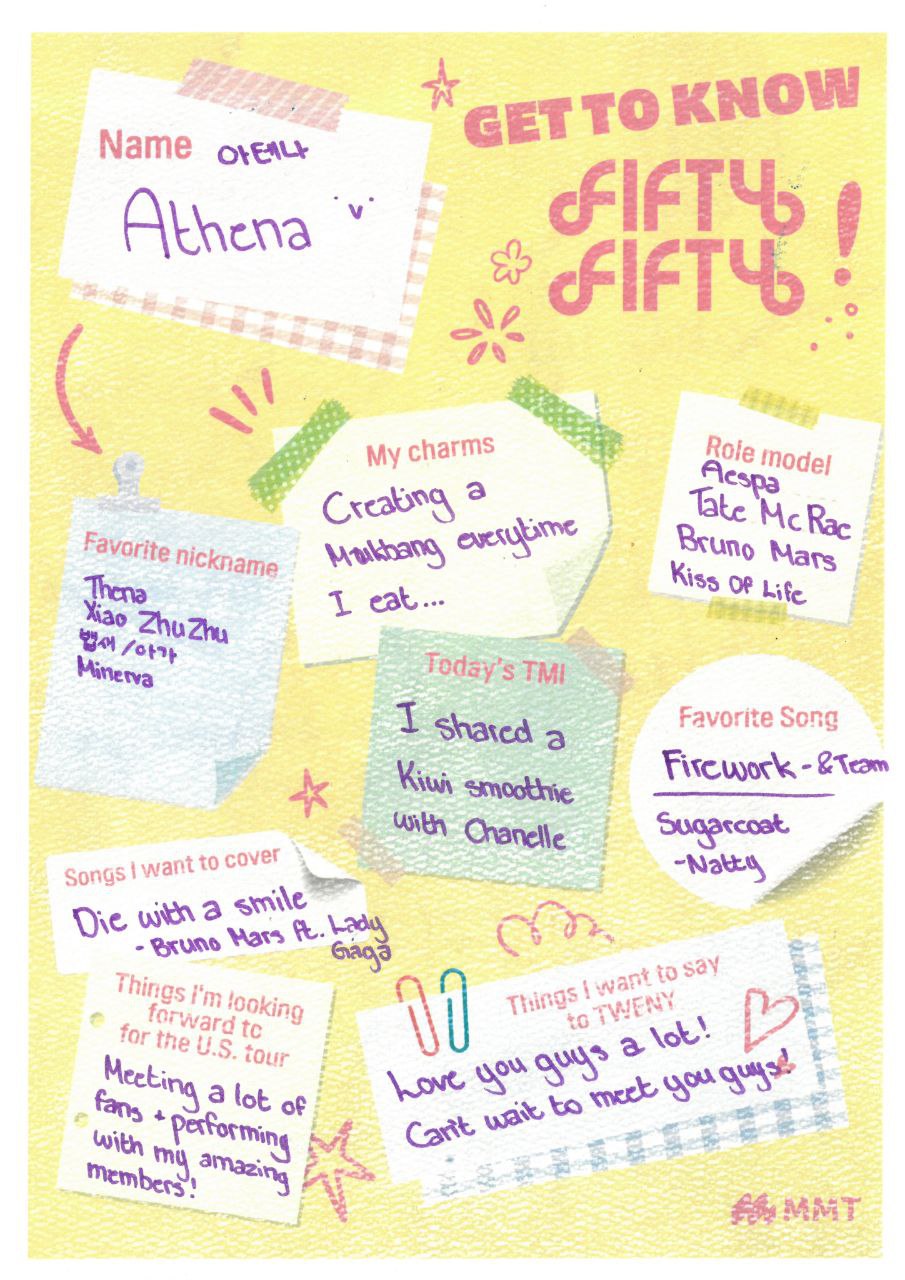 GET TO KNOW
FIFTY
FIFTY!
Name 아테나
Athena
My charms
Creating a
Mukbang everytime
I eat...
Role model
Aespa
Tate McRae
Bruno Mars
Kiss Of Life
Favorite nickname
Thena
Xiao ZhuZhu
뱁새/아가
Minerva
Today's TMI
I shared a
Kiwi smoothie
with Chanelle
Favorite Song
Firework - &Team
Sugarcoat
-Natty
Songs I want to cover
Die with a smile
- Bruno Mars ft. Lady
Gaga
Things I'm looking
forward to
for the U.S. tour
Meeting a lot of
fans + performing
with my amazing
members!
Things I want to say
to TWENY
Love you guys a lot!
Can't wait to meet you guys!
MMT